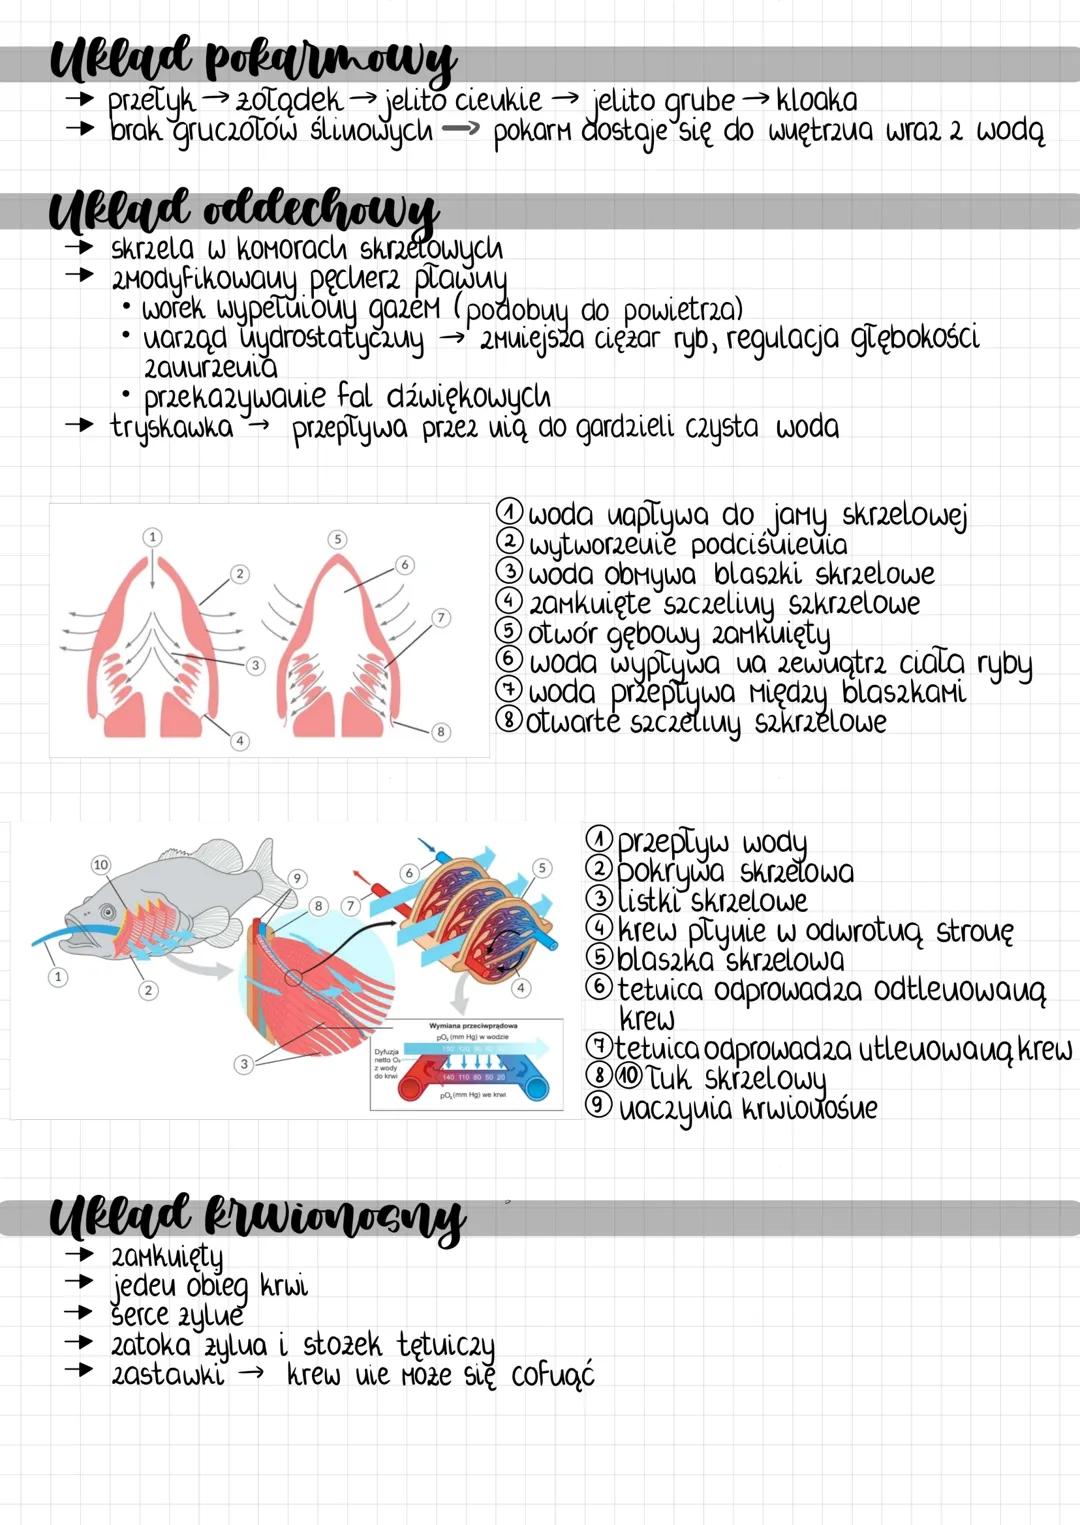 Układ pokarmowy
→ przełyk → żołądek → jelito cienkie → jelito grube → kloaka
→ brak gruczołów ślinowych → pokarm dostaje się do wnętrzna wraz z wodą
Układ oddechowy
→ skrzela w komorach skrzelowych
→ zmodyfikowany pęcherz pławny
• worek wypełniony gazem (podobny do powietrza)
• narząd hydrostatyczny → zmniejsza ciężar ryb, regulacja głębokości
zanurzenia
• przekazywanie fal dźwiękowych
→ tryskawka → przepływa przez nią do gardzieli czysta woda
① woda napływa do jamy skrzelowej
② wytworzenie podciśnienia
③ woda obmywa blaszki skrzelowe
④ zamknięte szczeliny szkrzelowe
⑤ otwór gębowy zamknięty
⑥ woda wypływa na zewnątrz ciała ryby
⑦ woda przepływa między blaszkami
⑧ otwarte szczeliny szkrzelowe
1
2
3
4
5
6
7
8
① przepływ wody
② pokrywa skrzelowa
③ listki skrzelowe
④ krew płynie w odwrotną stronę
⑤ blaszka skrzelowa
⑥ tetnica odprowadza odtlenowaną
krew
⑦ tetnica odprowadza utlenowaną krew
⑧ ⑩ łuk skrzelowy
⑨ naczynia krwionośne
10
9
8
7
6
5
1
2
3
4
Wymiana przeciwprądowa
pO₂ (mm Hg) w wodzie
Dyfuzja
netto O₂
z wody
do krwi
140 110 80 50 20
pO₂ (mm Hg) we krwi
Układ krwionosny
→ zamknięty
→ jeden obieg krwi
→ serce żylne
→ zatoka żylna i stożek tętniczy
→ zastawki → krew nie może się cofnąć